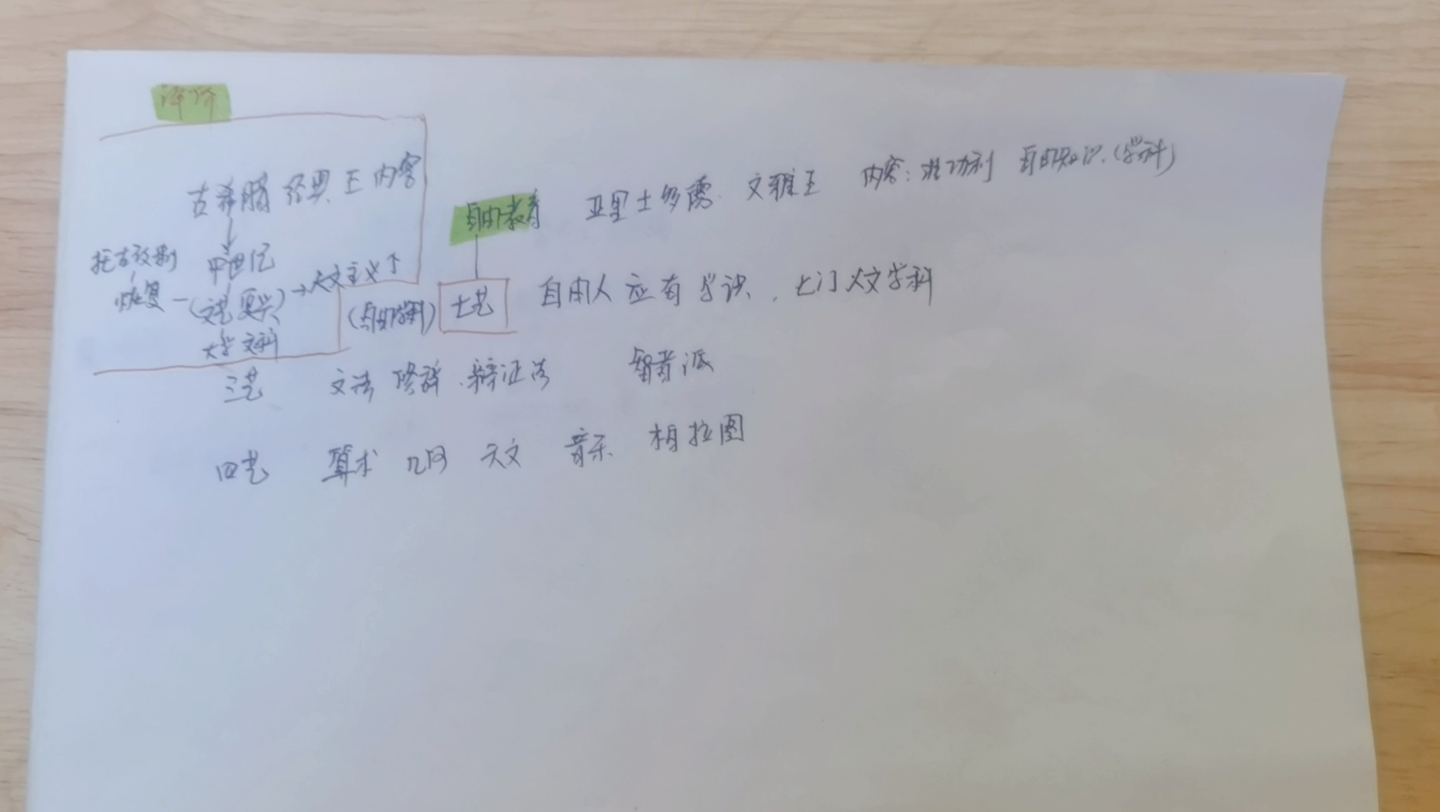 评价
古希腊 经典 王 内容
自由教育 亚里士多德. 文雅王 内容: 非功利 自由知识.(学科)
托古改制 中世纪
恢复 — (文艺复兴) → 人文主义下 (自由学科) 七艺 自由人 应有 学识, 七门人文学科
大学 文科
三艺 文法 修辞. 辩证法 智者派
四艺 算术 几何 天文 音乐. 柏拉图